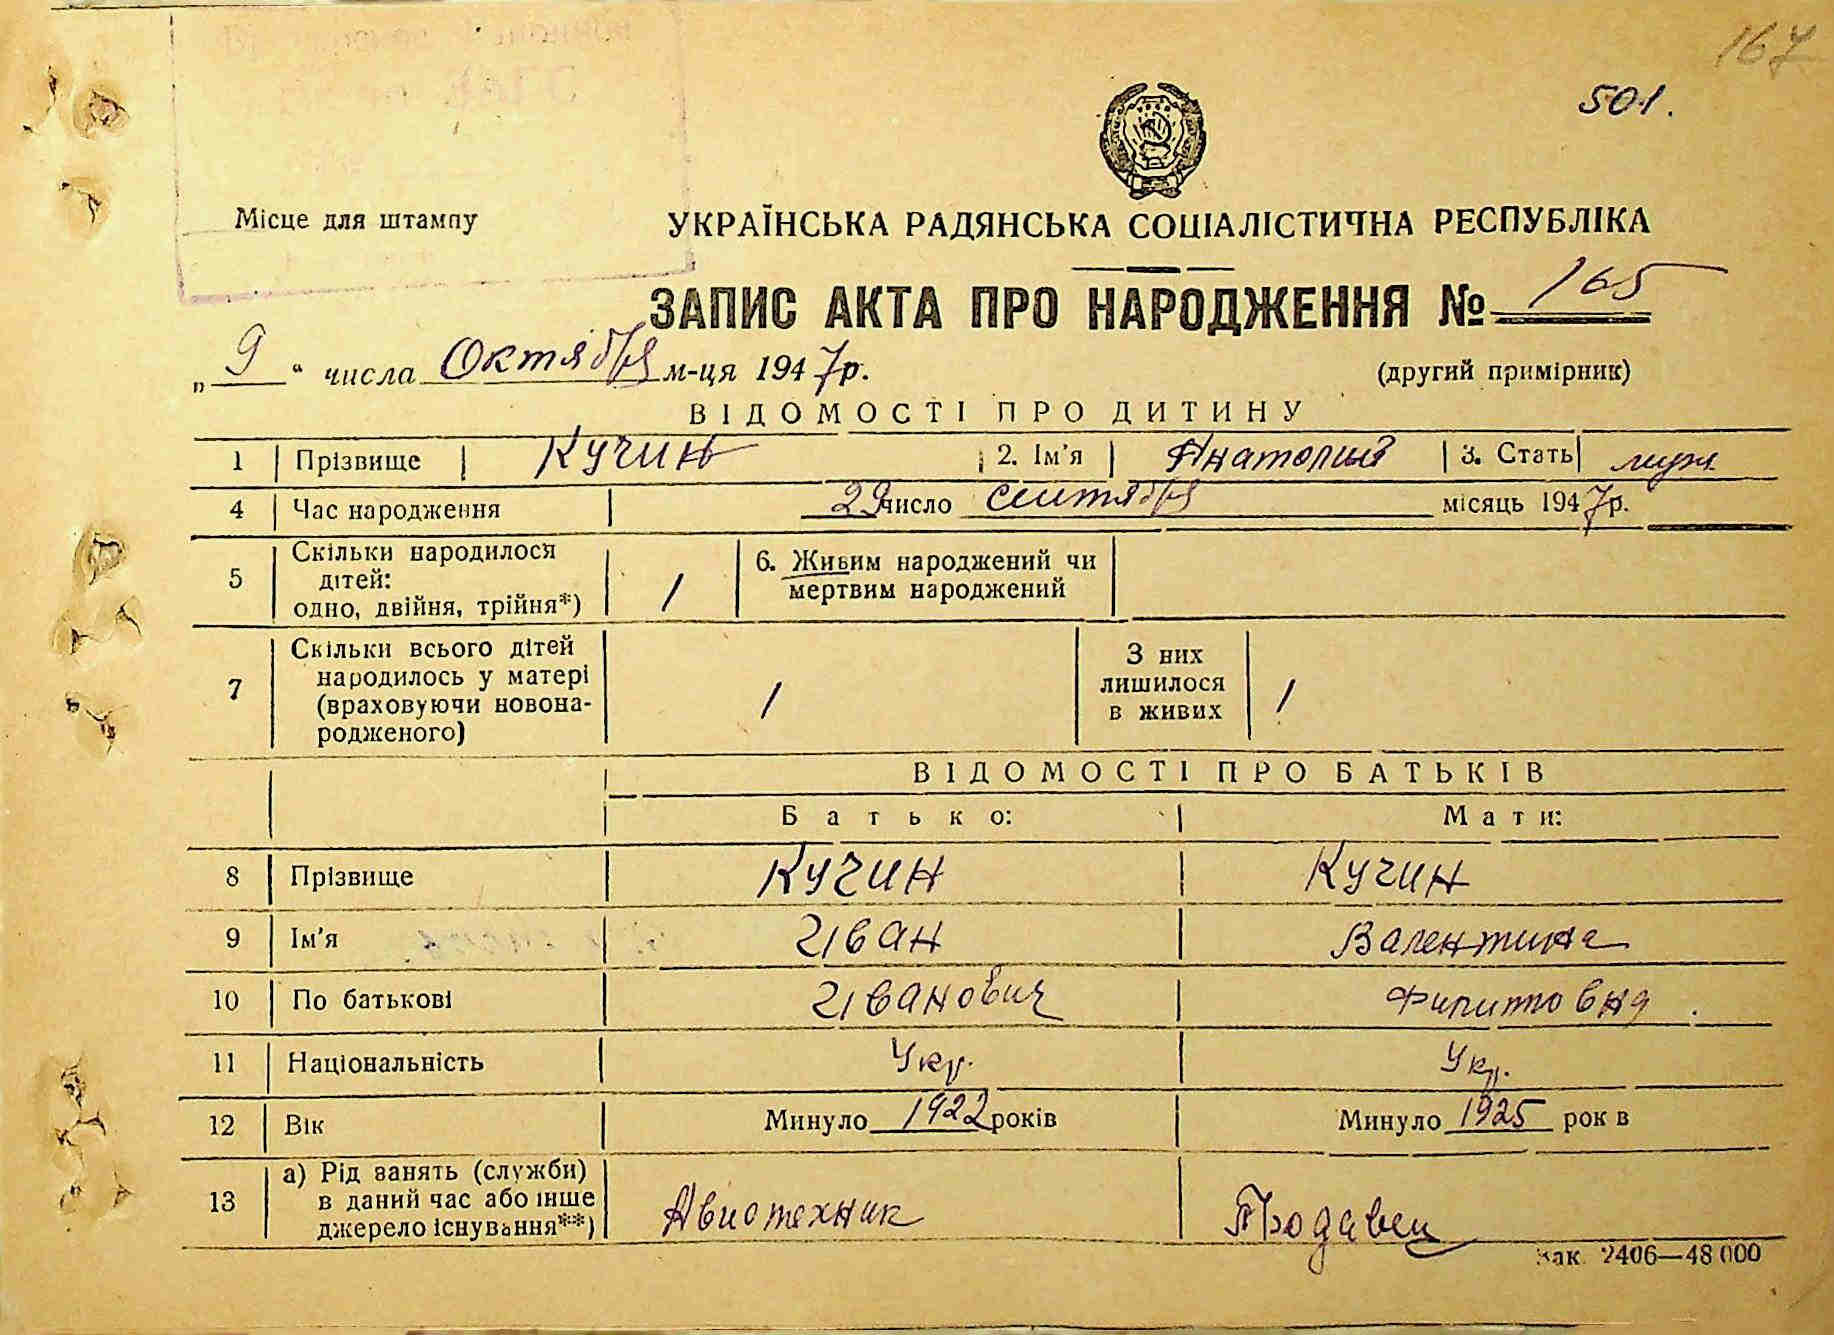 167
501.
Місце для штампу
УКРАЇНСЬКА РАДЯНСЬКА СОЦІАЛІСТИЧНА РЕСПУБЛІКА
ЗАПИС АКТА ПРО НАРОДЖЕННЯ № 165
„ 9 “ числа Октября м-ця 1947р.
(другий примірник)
ВІДОМОСТІ ПРО ДИТИНУ
1 Прізвище Кучин 2. Ім'я Анатолий 3. Стать муж.
4 Час народження 29 число сентября місяць 1947р.
5 Скільки народилося дітей: одно, двійня, трійня*) 1 6. Живим народжений чи мертвим народжений
7 Скільки всього дітей народилось у матері (враховуючи новонародженого) 1 З них лишилося в живих 1
ВІДОМОСТІ ПРО БАТЬКІВ
Батько: Мати:
8 Прізвище Кучин Кучин
9 Ім'я Иван Валентина
10 По батькові Иванович Филиповна.
11 Національність Укр. Укр.
12 Вік Минуло 1922 років Минуло 1925 рок в
13 а) Рід занять (служби) в даний час або інше джерело існування**) Авиотехник Продавец
Зак. 2406—48 000